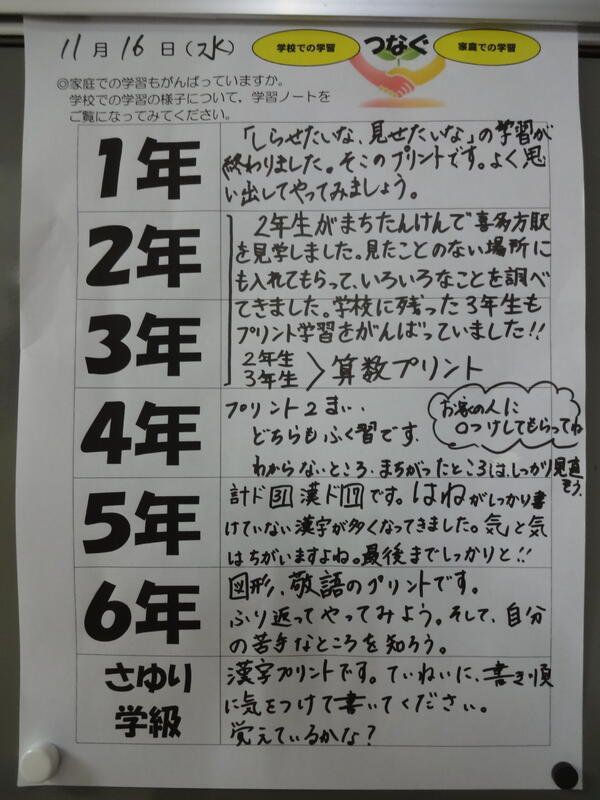 11月16日(水)
学校での学習
つなぐ
家庭での学習
◎家庭での学習もがんばっていますか。
学校での学習の様子について、学習ノートを
ご覧になってみてください。
1年
「しらせたいな、見せたいな」の学習が
終わりました。そこのプリントです。よく思
い出してやってみましょう。
2年
3年
2年生がまちたんけんで喜多方駅
を見学しました。見たことのない場所に
も入れてもらって、いろいろなことを調べ
てきました。学校に残った3年生も
プリント学習をがんばっていました!!
2年生
3年生
〉算数プリント
4年
プリント2まい、
どちらもふく習です。
お家の人に
〇つけしてもらってね
わからないところ、まちがったところは、しっかり見直
そう。
5年
計ド31 漢ド17です。はねがしっかり書
けていない漢字が多くなってきました。気と気
はちがいますよね。最後までしっかりと!!
6年
図形、敬語のプリントです。
ふり返ってやってみよう。そして、自分
の苦手なところを知ろう。
さゆり
学級
漢字プリントです。ていねいに、書き順
に気をつけて書いてください。
覚えているかな?